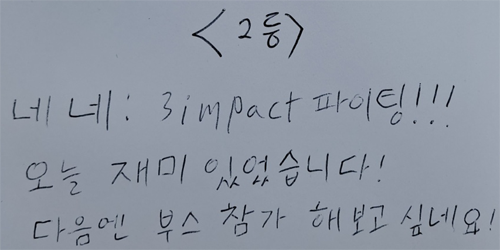 <2등>
네네: 3impact 파이팅!!!
오늘 재미 있었습니다!
다음엔 부스 참가 해보고 싶네요!